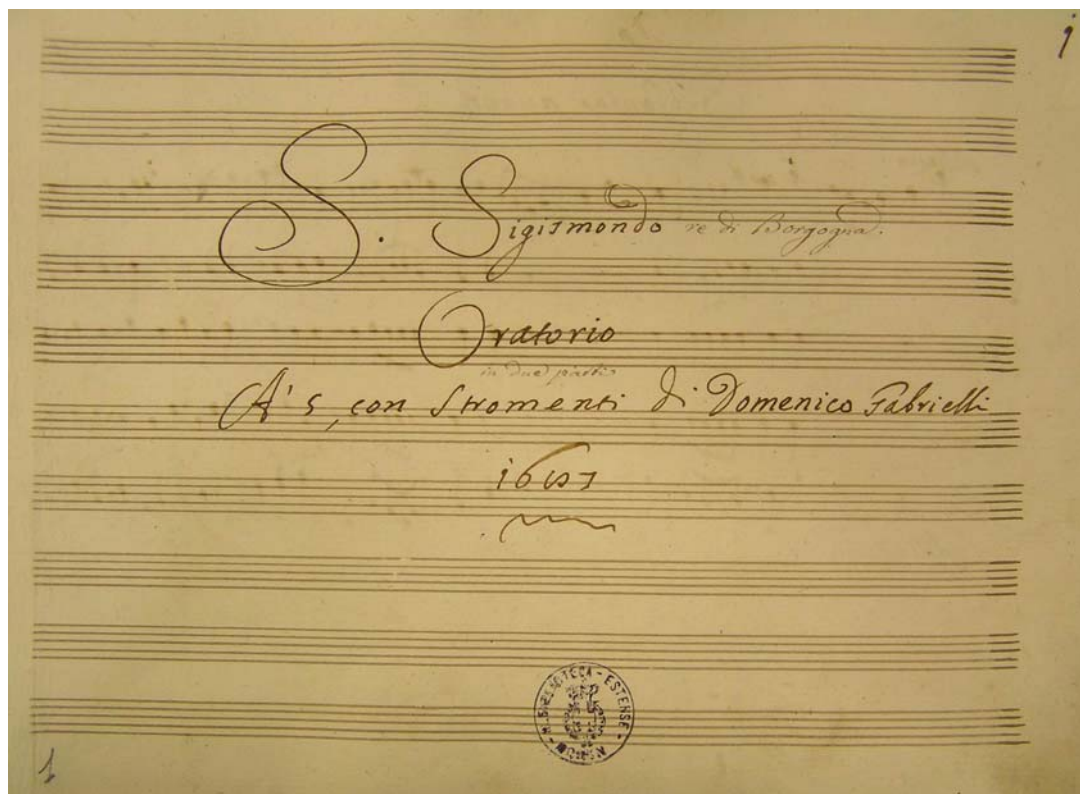 1
S. Sigismondo re di Borgogna.
Oratorio
in due parti
A' 5, con Stromenti di Domenico Gabrielli
1687
R. BIBLIOTECA - ESTENSE - MODENA
1